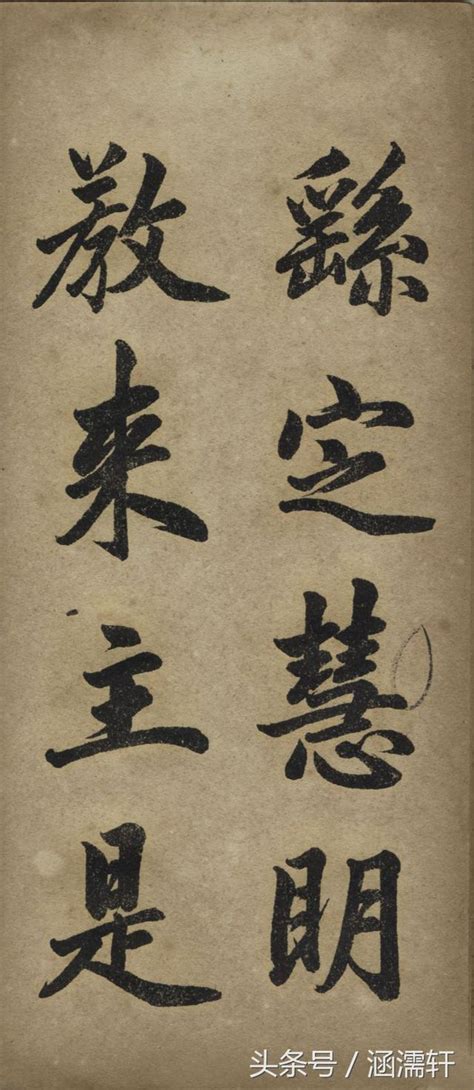 繇定慧明
教來主是
头条号 / 涵濡轩